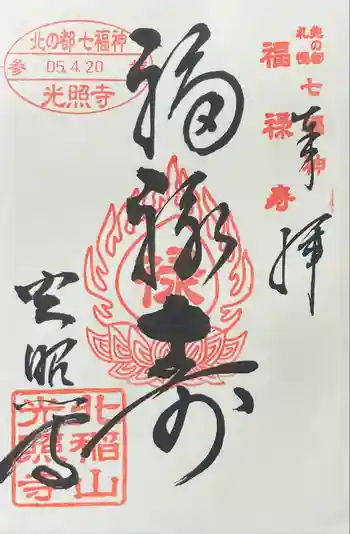 北の都
札幌
七福神
福禄寿
奉拝
福禄寿
禄
光照寺
北の都七福神
参 05.4.20 拝
光照寺
北稲山
光照寺